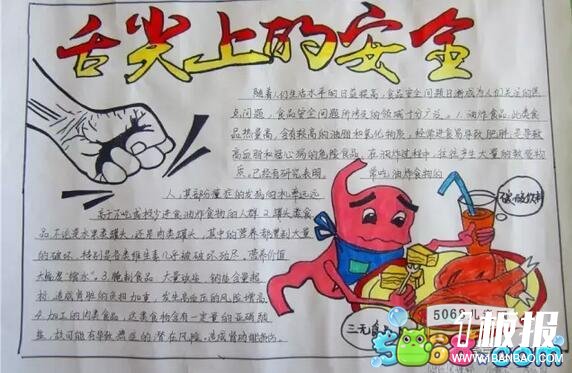 舌尖上的安全
随着人们生活水平的日益提高,食品安全问题日渐成为人们关注的焦
点问题,食品安全问题所涉及的领域十分广泛。1.油炸食品,此类食
品热量高,含有较高的油脂和氧化物质,经常进食易导致肥胖,是导致
高血脂和冠心病的危险食品。在油炸过程中,往往产生大量的致癌物
质。已经有研究表明,常吃油炸食物的
人,其部分癌症的发病的机率远远
高于不吃或极少进食油炸食物的人群。2.罐头类食
品,不论是水果类罐头,还是肉类罐头,其中的营养都遭到大量
的破坏,特别是各类维生素几乎被破坏殆尽,营养价值
大幅度“缩水”。3.腌制食品,大量放盐,钠盐含量超
标,造成肾脏的负担加重,发生高血压的风险增高。
4.加工的肉类食品,这类食物含有一定量的亚硝酸
盐,故可能有导致癌症的潜在风险。造成肾功能
碳酸饮料
三无食品
5068儿
板报
5068.com
WWW.1BANBAO.COM